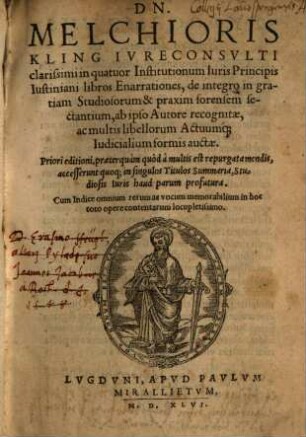 DN.
MELCHIORIS
KLING IVRECONSVLTI
clarissimi in quatuor Institutionum Iuris Principis
Iustiniani libros Enarrationes, de integro in gra-
tiam Studiosorum & praxim forensem se-
ctantium, ab ipso Autore recognitæ,
ac multis libellorum Actuumq;
Iudicialium formis auctæ.
Priori editioni, præterquàm quòd à multis est repurgata mendis,
accesserunt quoq; in singulos Titulos Summaria, Stu-
diosis Iuris haud parum profutura.
Cum Indice omnium rerum ac vocum memorabilium in hoc
toto opere contentarum locupletissimo.
D. Erasmo
LVGDVNI, APVD PAVLVM
MIRALLIETVM,
M. D. XLVI.